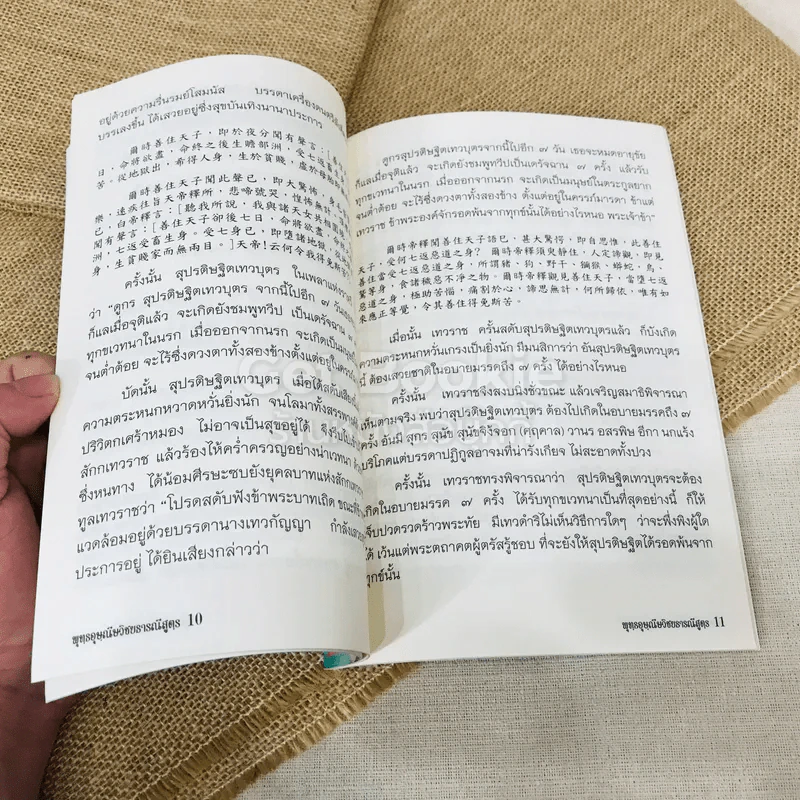 อยู่ด้วยความรื่นรมย์โสมนัส บรรดาเครื่องดนตรี
บรรเลงขึ้น ได้เสวยอยู่ซึ่งสุขบันเทิงนานาประการ
爾時善住天子，即於夜分聞有聲言：[善住
日，命將欲盡，命終之後生贍部洲，受七返畜生
苦。從地獄出，希得人身，生於貧賤，處於母胎即
爾時善住天子聞此聲已，即大驚怖，身毛
樂，速疾往詣天帝釋所，悲啼號哭，惶怖無
已，白帝釋言：[聽我所說，我與諸天女共相圍繞
聞有聲言：[善住天子卻後七日，命將欲盡，命終
洲，七返受畜生身。受七身已，即墮諸地獄，從地獄
身，生貧賤家而無兩目。]天帝！云何令我得免斯苦
ครั้งนั้น สุปรดิษฐิตเทวบุตร ในเพลาแห่งราตรี
ว่า “ดูกร สุปรดิษฐิตเทวบุตร จากนี้ไปอีก ๗ วัน
ก็แลเมื่อจุติแล้ว จะเกิดยังชมพูทวีป เป็นเดรัจฉาน
ทุกขเวทนาในนรก เมื่อออกจากนรก จะเกิดเป็นมนุษย์
จนต่ำต้อย จะไร้ซึ่งดวงตาทั้งสองข้างตั้งแต่อยู่ในครรภ์
บัดนั้น สุปรดิษฐิตเทวบุตร เมื่อได้สดับเสียง
ความตระหนกหวาดหวั่นยิ่งนัก จนโลมาทั้งสรรพางค์
ปริวิตกเศร้าหมอง ไม่อาจเป็นสุขอยู่ได้ จึงรีบไป
สักกเทวราช แล้วร้องไห้คร่ำครวญอย่างน่าเวทนา
ซึ่งหนทาง ได้น้อมศีรษะซบยังยุคลบาทแห่งสักกเทว
ทูลเทวราชว่า “โปรดสดับฟังข้าพระบาทเถิด ขณะที่ข้า
แวดล้อมอยู่ด้วยบรรดานางเทวกัญญา กำลังเสวย
ประการอยู่ ได้ยินเสียงกล่าวว่า
พุทธอุษณีษวิชยธารณีสูตร 10
ดูกรสุปรดิษฐิตเทวบุตรจากนี้ไปอีก ๗ วัน เธอจะหมดอายุขัย
ก็แลเมื่อจุติแล้ว จะเกิดยังชมพูทวีปเป็นเดรัจฉาน ๗ ครั้ง แล้วรับ
ทุกขเวทนาในนรก เมื่อออกจากนรก จะเกิดเป็นมนุษย์ในตระกูลยาก
จนต่ำต้อย จะไร้ซึ่งดวงตาทั้งสองข้าง ตั้งแต่อยู่ในครรภ์มารดา ข้าแต่
เทวราช ข้าพระองค์จักรอดพ้นจากทุกข์นั้นได้อย่างไรหนอ พระเจ้าข้า”
爾時帝釋聞善住天子語已，甚大驚愕，即自思惟，此善住
天子，受何七返惡道之身？爾時帝釋須臾靜住，入定諦觀，即見
善住當受七返惡道之身，所謂豬、狗、野干、獼猴、蟒蛇、烏、
鷲等身，食諸穢惡不淨之物。爾時帝釋觀見善住天子，當墮七返
惡道之身，極助苦惱，痛割於心，諦思無計，何所歸依，唯有如
來應正等覺，令其善住得免斯苦。
เมื่อนั้น เทวราช ครั้นสดับสุปรดิษฐิตเทวบุตรแล้ว ก็บังเกิด
ความตระหนกหวั่นเกรงเป็นยิ่งนัก มีมนสิการว่า อันสุปรดิษฐิตเทวบุตร
นี้ ต้องเสวยชาติในอบายมรรคถึง ๗ ครั้ง ได้อย่างไรหนอ
ครั้งนั้น เทวราชจึงสงบนิ่งชั่วขณะ แล้วเจริญสมาธิพิจารณา
เห็นตามจริง พบว่าสุปรดิษฐิตเทวบุตร ต้องไปเกิดในอบายมรรคถึง ๗
ครั้ง อันมี สุกร สุนัข สุนัขจิ้งจอก (คฤคาล) วานร อสรพิษ อีกา นกแร้ง
บริโภคแต่บรรดาปฏิกูลอาจมที่น่ารังเกียจ ไม่สะอาดทั้งปวง
ครั้งนั้น เทวราชทรงพิจารณาว่า สุปรดิษฐิตเทวบุตรจะต้อง
เกิดในอบายมรรค ๗ ครั้ง ได้รับทุกขเวทนาเป็นที่สุดอย่างนี้ ก็ให้
เจ็บปวดรวดร้าวพระทัย มีเทวดำริไม่เห็นวิธีการใดๆ ว่าจะพึ่งพิงผู้ใด
ได้ เว้นแต่พระตถาคตผู้ตรัสรู้ชอบ ที่จะยังให้สุปรดิษฐิตได้รอดพ้นจาก
ทุกข์นั้น
พุทธอุษณีษวิชยธารณีสูตร 11